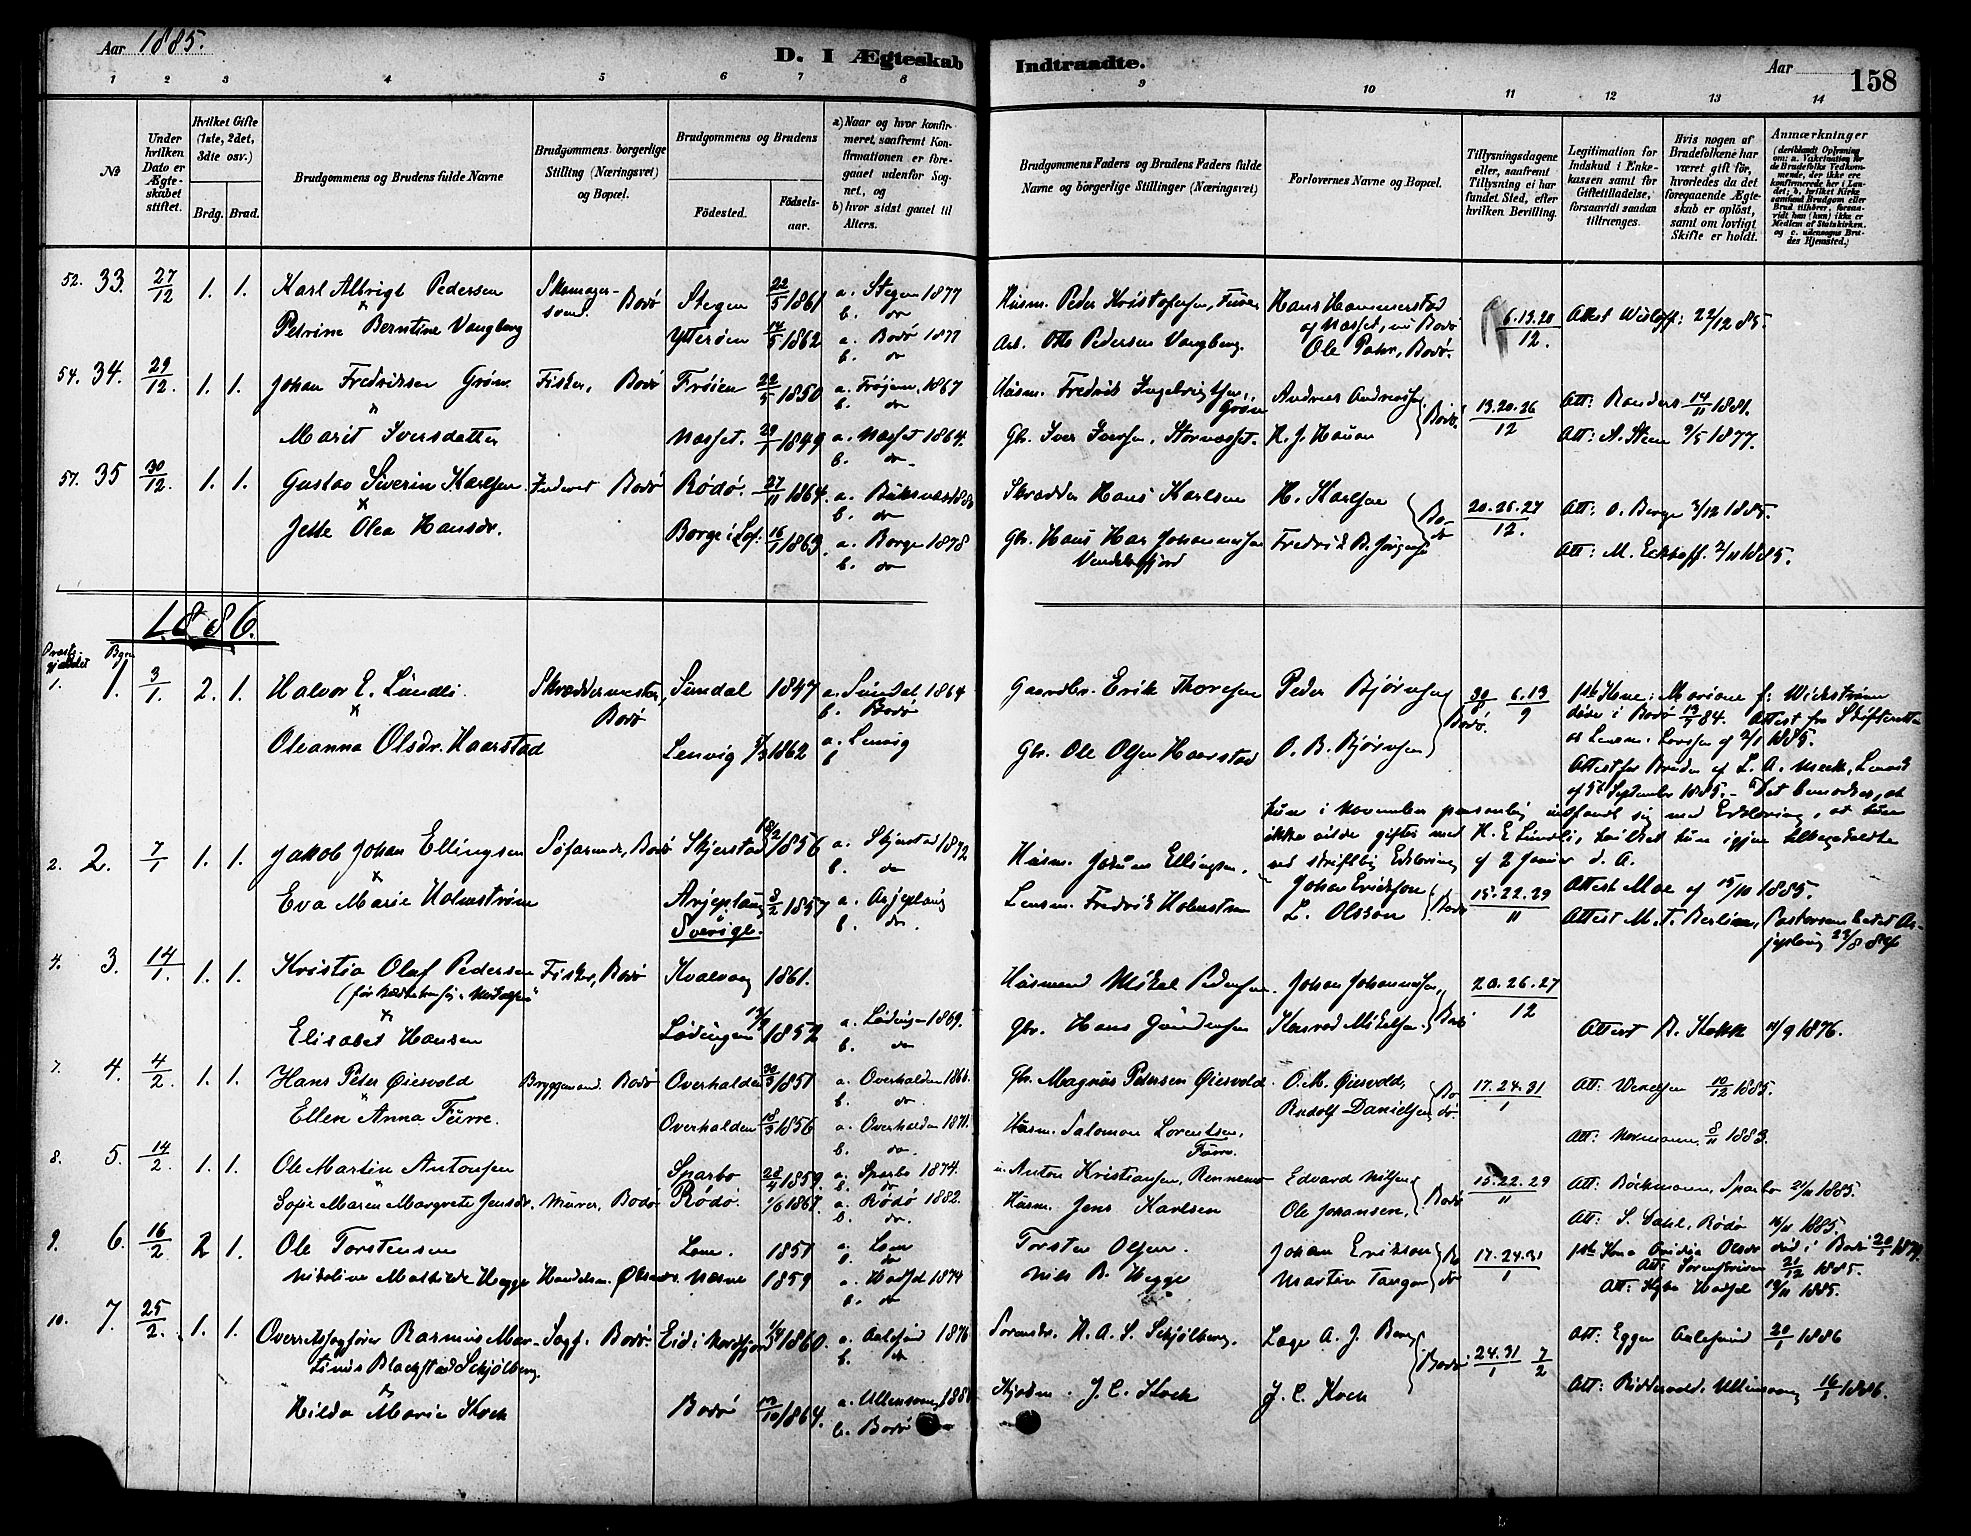 Aar 1885.
D. I Ægteskab Indtraadte.
Aar
158
1 2 3 4 5 6 7 8 9 10 11 12 13 14
No
Under hvilken Dato er Ægteskabet stiftet.
Hvilket Gifte (1ste, 2det, 3die osv.)
Brdg. Brud.
Brudgommens og Brudens fulde Navne
Brudgommens borgerlige Stilling (Næringsvei) og Bopæl.
Brudgommens og Brudens
Fødested.
Fødselsaar.
a) Naar og hvor konfirmeret, saafremt Konfirmationen er foregaaet udenfor Sognet, og
b) hvor sidst gaaet til Alters.
Brudgommens Faders og Brudens Faders fulde Navne og borgerlige Stillinger (Næringsvei)
Forlovernes Navne og Bopæl.
Tillysningsdagene eller, saafremt Tillysning ei har fundet Sted, efter hvilken Bevilling.
Legitimation for Indskud i Enkekassen samt for Giftetilladelse, forsaavidt saadan tiltrænges.
Hvis nogen af Brudefolkene har været gift før, hvorledes da det foregaaende Ægteskab er opløst, samt om lovligt Skifte er holdt.
Anmærkninger (deriblandt Oplysning om: a. Vaksination for de Brudefolks Vedkommende, der ikke ere konfirmerede her i Landet; b. hvilket Kirkesamfund Brudgom eller Brud tilhører, forsaavidt han (hun) ikke er Medlem af Statskirken, og c. udensogns Brudes Hjemsted.)
52. 33. 27/12 1. 1. Karl Albrigt Pedersen Skomagersvend. Bodø Stegen 22/5 1861 a. Stegen 1877 b. do Husm. Peder Kristofersen, Hans Hammerstad af Næsset, nu Bodø 6.13.20/12. Attest 22/12 85.
Petrine Berntine Vangberg Ytterøen 14/5 1862 a. Bodø 1877 b. do Arb. Otto Pedersen Vangberg. Ole Bodø.
54. 34. 29/12 1. 1. Johan Fredriksen Grøn. Fisker, Bodø Frøien 22/5 1850 a. Frøien 1867 b. do Husm. Fredrik Ingebrigtsen Grøn Andreas Andreassen Bodø. 13.20.26/12 Att: Randers 14/11 1881.
Marit Iversdatter Næsset. 29/7 1849 a. Næsset 1864. b. do. Gbr. Iver Iversen, Størnæsset. H. J. Hauan Att: A. Steen 9/5 1877.
57. 35 30/12 1. 1. Gustav Severin Karlsen Inderst Bodø Rødø. 27/11 1864. a. b. do Skrædder Hans Karlsen H. Karlsen Bodø 20.26.27/12. Att: O. Berge 3/12 1885.
Jette Olea Hansdr. Borge i Lof: 16/1 1863. a. Borge 1878 b. do Gbr. Hans Johannessen Fredrik B. Jørgensen Att: M. Eckhoff. 2/11 1885.
1886.
Præstegjældet Byen
1. 1. 3/1 2. 1. Halvor E. Lundli Skræddermester, Bodø Sundal 1847 a. Sundal 1864 b. Bodø Gaardbr. Erik Thoresen Peder Bjørnsen Bodø. 30/8 6.13/9 1ste Kone: Mariane f. Wickstrøm døde i Bodø 13/5 84. Attest fra Skifteretten 2/1 1885.
Oleanna Olsdr. Haarstad Lenvig 5/3 1862 a. Lenvig b Gbr. Ole Olsen Haarstad O. B. Bjørnsen Attest for Bruden af L. A. Lenvik af 5te September 1885. Det bemærkes, at hun i November personlig indfandt sig med Erklæring, at hun ikke vilde giftes med H. E. Lundli, hvilket hun igjen tilbagekaldte ved skriftlig Erklæring af 2 Januar d. A.
2. 2. 7/1 1. 1. Jakob Johan Ellingsen Søfarende, Bodø Skjerstad 18/2 1856 a. Skjerstad 1872 b. do Husm. Ellingsen. Johan Eriksson Bodø 15.22.29/11 Attest Moe af 15/10 1885.
Eva Marie Holmstrøm Arjeplaug Sverige. 8/2 1857 a. Arjeplaug b. do. Lensm. Fredrik Holmstrøm L. Olsson Attest M. T. Berlin, Pastorsembetet Arjeplaug 23/8 84
4. 3. 14/1 1. 1. Kristia Olaf Pedersen Fisker, Bodø Kvalvaag 1861. Husmand Mikal Pedersen. Johan Johannessen, Bodø 20.26.27/12
Elisabet Hansen Lødingen 1852 a. Lødingen 1869. b. do Gbr. Hans Konrad Mikelsen. Attest 1876.
7. 4. 4/2 1. 1. Hans Peter Øiesvold Bryggemand. Bodø Overhalden 30/3 1851 a. Overhalden 1866. b. do. Gbr. Magnus Petersen Øiesvold O. M. Øiesvold, Bodø. 17.24.31/1 Att: Wendsen 10/12 1885.
Ellen Anna Furre. Overhalden 18/3 1856 a. Overhalden 1871. b. do. Husm. Salomon Lorentsen, Furre. Rudolf Danielsen Att: Normann 8/11 1883.
8. 5. 14/2 1. 1. Ole Martin Antonsen Sparbo 28/4 1859. a. Sparbo 1874. b. do Anton Kristiansen, Rennemo Edvard Nilsen Bodø 15.22.29/11 Att: Böckmann, Sparbo 21/11 1885.
Sofie Maren Margrete Jensdr. Murer, Bodø Rødø. 1/6 1867. a. Rødø 1882. b. do. Husm. Jens Karlsen Ole Johansen. Att: S. Dahl. Rødø 1885.
9. 6. 16/2 2 1. Ole Torstensen Lom. 1851 a. Lom b. do Torsten Olsen. Johan Erikson Bodø 17.24.31/1 1ste Kone Olsdr død i Bodø 20/1 1879. Att: Sørensen 21/12 1885.
Nikoline Mathilde Hegge Handelsm. Næsne 1859 a. Hadsel 1874 b. do Nils B. Hegge Martin Tangen Att: Hadsel 1885.
10. 7. 25/2. 1. 1. Overretssagfører Rasmus Martinus Blackstad Schjølberg. Sagf. Bodø. Eid i Nordfjord 1860. a. Aalesund 1876 b. do Sorenskr. H. A. S. Schjølberg. Læge A. J. Berg Bodø. 24.31/1 7/2 Att: Eggen Aalesund 20/1 1886
Hilda Marie Koch Bodø 12/10 1864. a. Ullensvang 1881 b. Bodø Kjøbm. J. C. Koch J. C. Koch Att: Ridderwold. Ullensvang 16/1 1886.